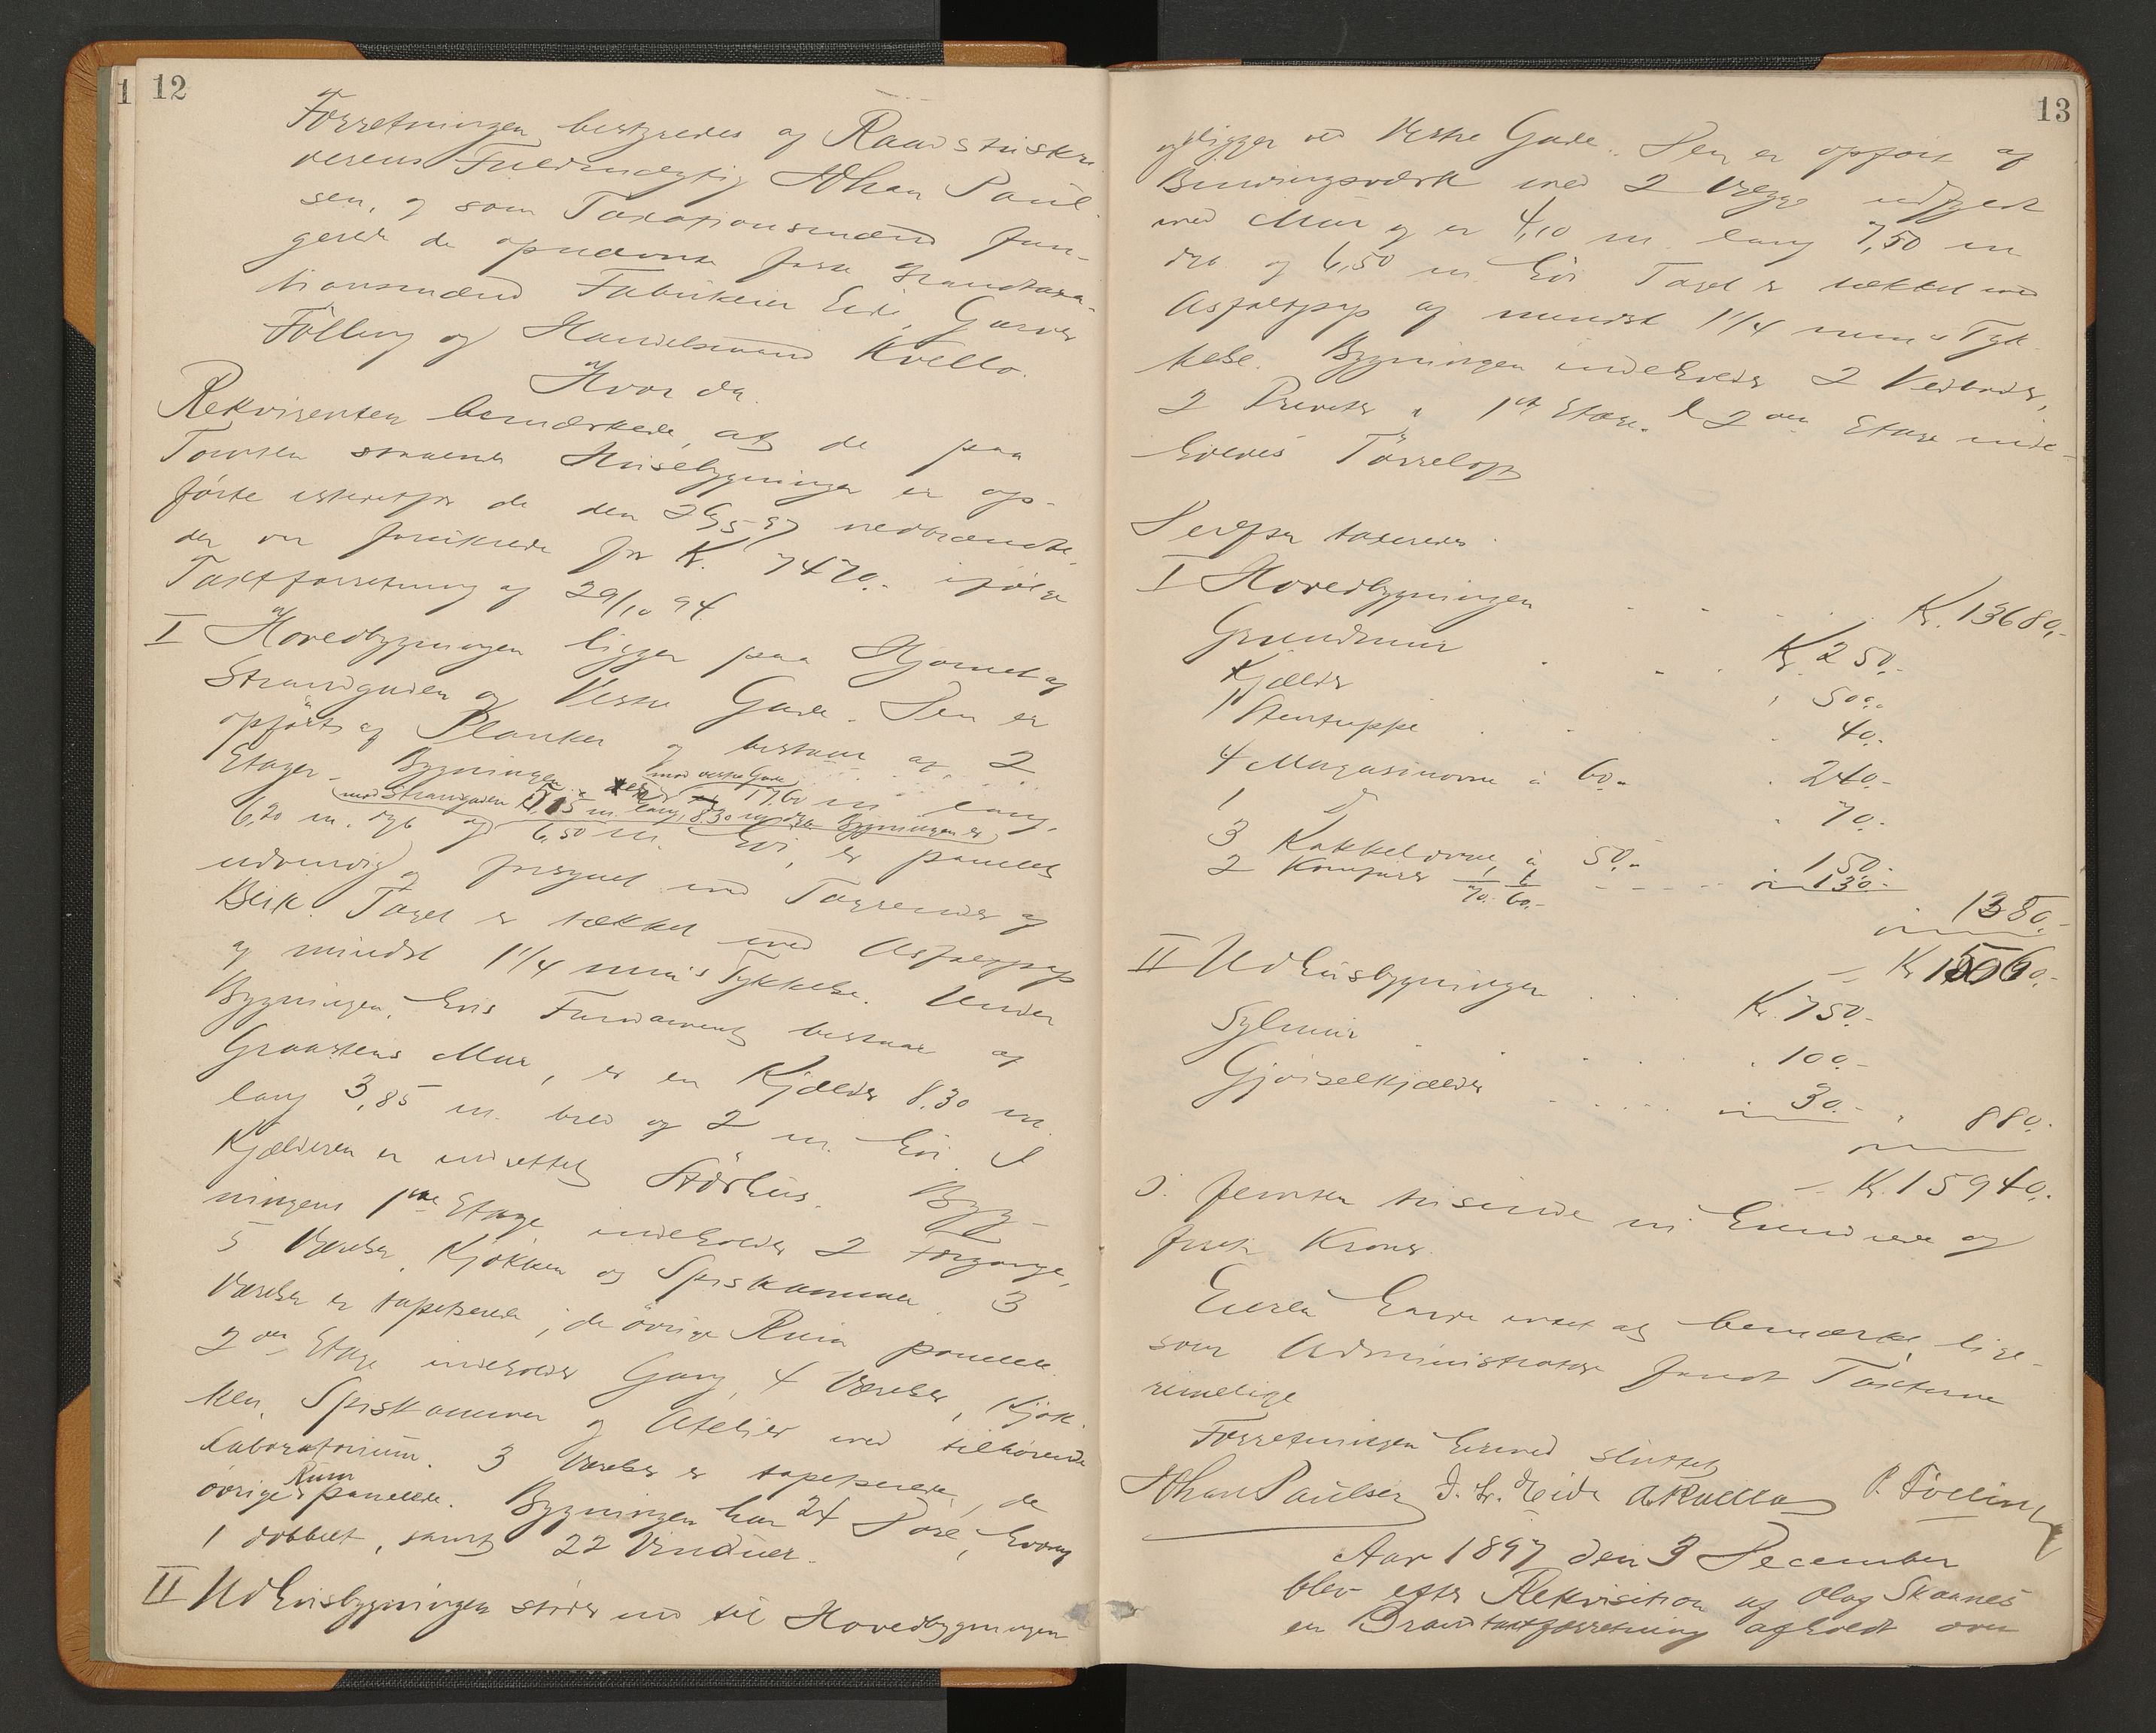 12
Forretningen bestyredes af Raadstuskri
verens Fuldmægtig Johan Paul-
sen, og som Taxationsmænd fun-
gerede de opnævnte faste Brandtaxa-
tionsmænd Fabrikeier Eide, Garver
Følling og Handelsmand Kvello.
Hvor da
Rekvirenten bemærkede, at de paa
Tomten staaende Husebygninger er op-
førte istedetfor de den 29/5 97 nedbrændte,
der var forsikrede for Kr. 7470.- ifølge
Taxtforretning af 29/10 94.
I Hovedbygningen ligger paa Hjørnet af
Strandgaden og Vestre Gade. Den er
opført af Planker og bestaar af 2
Etager. Bygningen er mod vestre Gade 17.60 m lang,
6,20 m. dyb og mod Strandgaden 15 m. lang, 8.30 m dyb Bygningen er
6,50 m. høi, er panelet
udvendig og forsynet med Tagrender af
Blik. Taget er tækket med Asfaltpap
af mindst 1 1/4 mm's Tykkelse. Under
Bygningen, hvis Fundament bestaar af
Graastens Mur, er en Kjælder 8.30 m.
lang 3,85 m. bred og 2 m. høi. I
Kjælderen er indrettet Størhus. Byg-
ningens 1ste Etage indeholder 2 Forgange,
5 Værelser, Kjøkken og Spiskammer. 3
Værelser er tapetserede, de øvrige Rum panelede.
2den Etage indeholder Gang, 4 Værelser, Kjøk-
ken, Spiskammer og Atelier med tilhørende
Laboratorium. 3 Værelser er tapetserede, de
øvrige Rum panelede. Bygningen har 24 Døre, hvoraf
1 dobbelt, samt 22 Vinduer.
II Udhusbygningen støder ind til Hovedbygningen
13
og ligger ved Vestre Gade. Den er opført af
Bindingsværk med 2 Vægge udfyldt
med Mur og er 4,10 m. lang 7,50 m
dyb og 6,50 m høi. Taget er tækket med
Asfaltpap af mindst 1 1/4 mm's Tyk-
kelse. Bygningen indeholder 2 Vedboder,
2 Priveter i 1ste Etage. I 2den Etage inde-
holdes Tørreloft
Derefter taxeredes
I Hovedbygningen . . . . Kr. 13680,-
Grundmur . . . Kr. 250.-
Kjælder " 500.-
1 Stentrappe . . . 40.-
4 Magasinovne à 60.- . 240.-
1 Do . 70.-
3 Kakkelovne à 50.- . 150.-
2 Komfurer 1/70. 1/60.- - - - - " 130.-
" 1380.-
- Kr 15060.-
II Udhusbygningen . . . Kr. 750.-
Sylmur . . . . 100.-
Gjødselkjælder . . . . . " 30.- " 880.-
- Kr. 15940.-
d. femten tusinde ni hundrede og
førti Kroner.
Eieren havde intet at bemærke, lige-
som Administrator fandt Taxterne
rimelige
Forretningen hermed sluttet
Johan Paulsen J. L. Eide A Kvello P. Følling
Aar 1897 den 3 December
blev efter Rekvisition af Olag Skaanes
en Brandtaxtforretning afholdt over